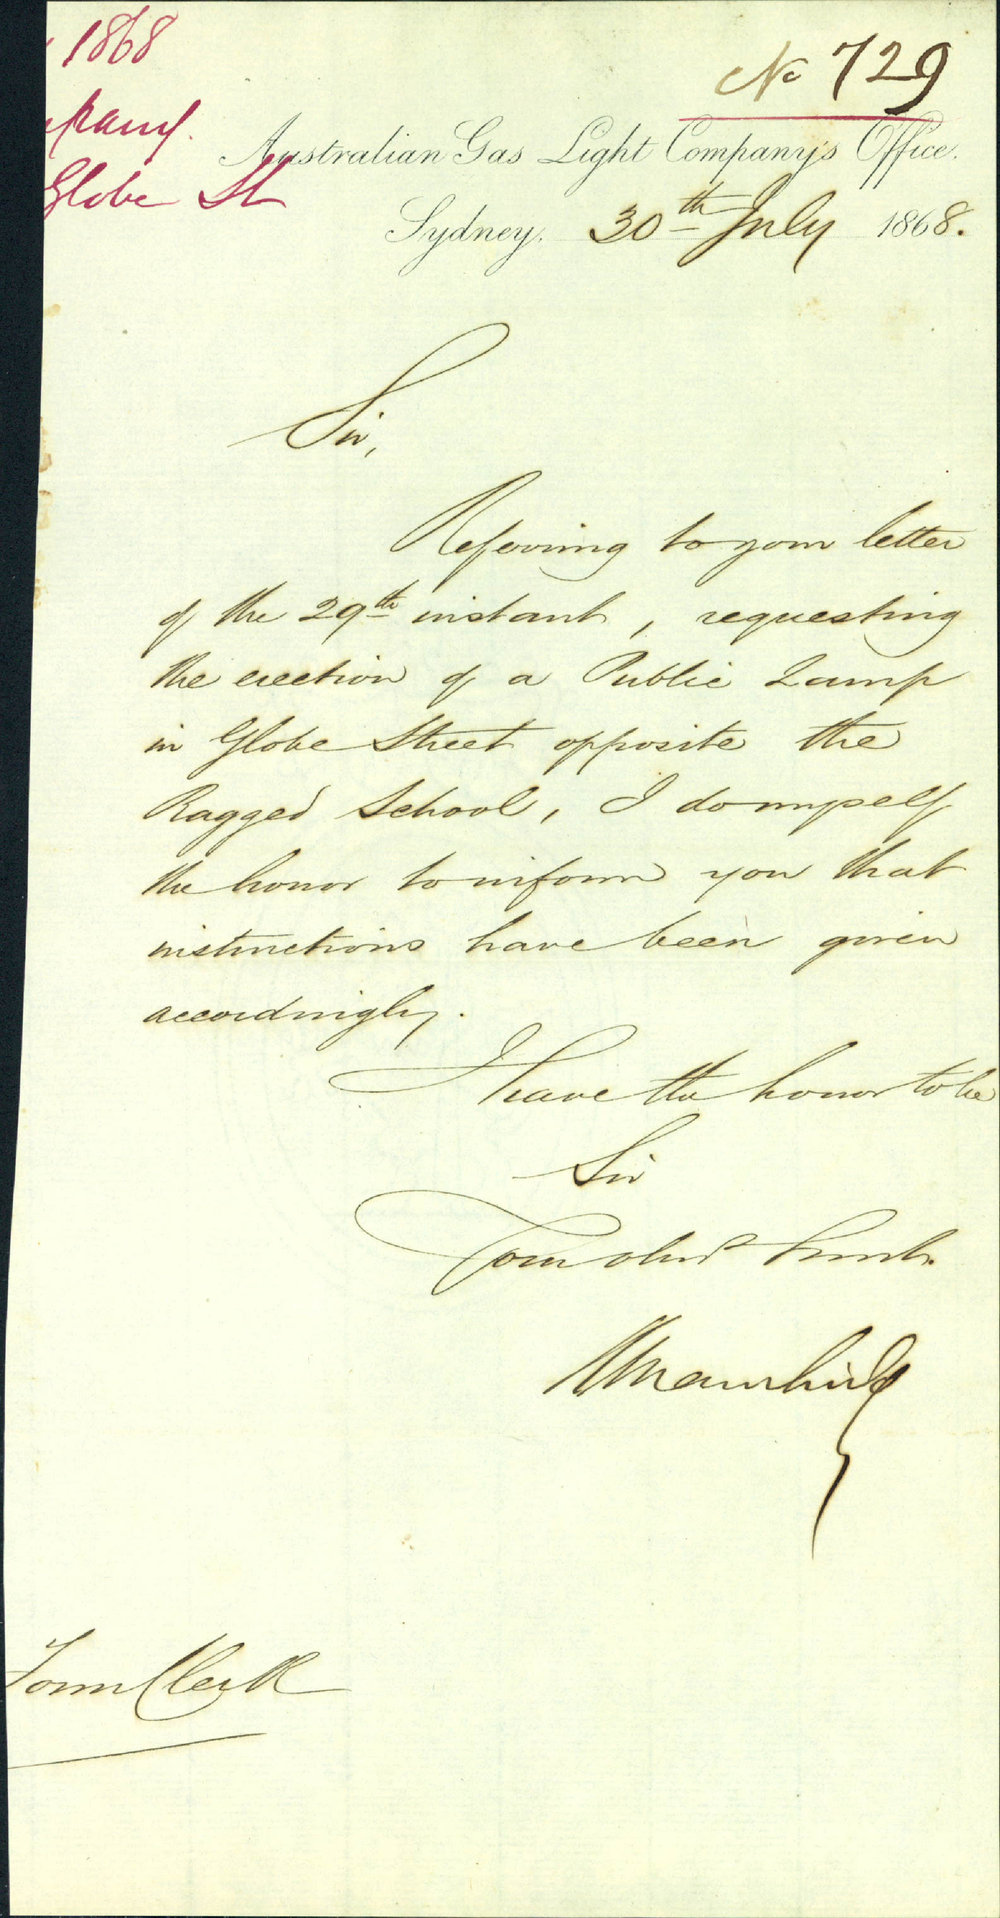 1868
No 729
Australian Gas Light Company's Office.
Globe St
Sydney. 30th July 1868.
Sir,
Referring to your letter
of the 29th instant, requesting
the erection of a Public Lamp
in Globe Street opposite the
Ragged School, I do myself
the honor to inform you that
instructions have been given
accordingly.
I have the honor to be
Sir
Your obedt Servt.
Town Clerk